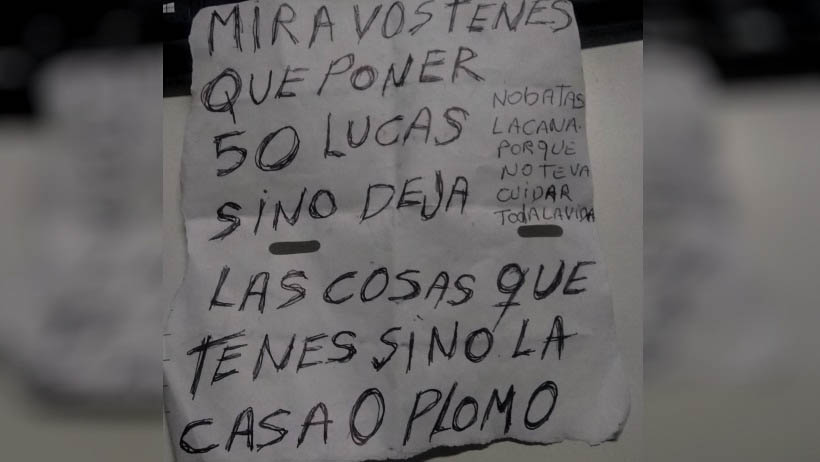 MIRA VOS TENES
QUE PONER
50 LUCAS
SINO DEJA
NOBATAS
LACANA.
PORQUE
NO TEVA
CUIDAR
TODALAVIDA
LAS COSAS QUE
TENES SINO LA
CASA O PLOMO